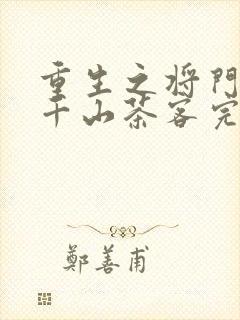 重生之将門
千山茶客完
鄭善甫